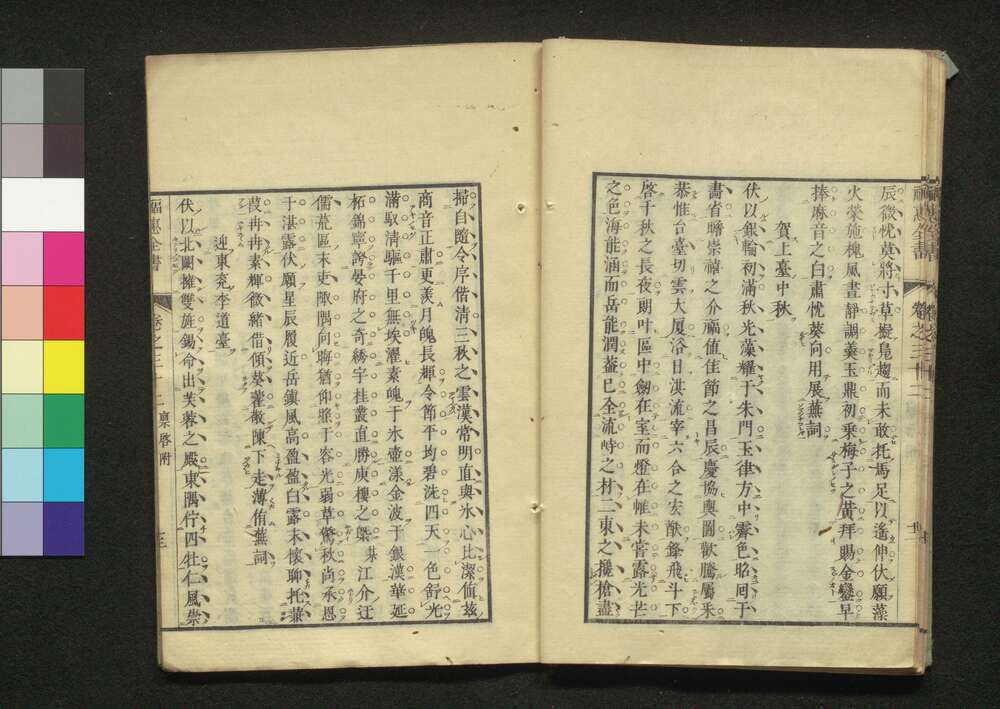 辰微忱莫將寸草擬鳧趨而未敢托馬足以遙伸伏願藻
火榮施槐風晝靜調羹玉鼎初乗梅子之黄拜賜金䜌早
捧麻音之白肅忱葵向用展蕪詞
賀上臺中秋
伏以銀輪初滿秋光藻耀于朱門玉律方中霽色昭囘于
畵省瞻崇禧之介福値佳節之昌辰慶協輿圖歡騰屬寀
恭惟台臺切雲大厦浴日洪流宰六合之宏猷鋒飛斗下
啓千秋之長夜朗叶區中劍在室而燈在帷未嘗露光芒
之色海能涵而岳能潤葢已全流峙之材二東之攙搶盡
掃自隨令序借清三秋之雲漢常明直與氷心比潔値兹
商音正肅更羨月魄長輝令節平均碧洗四天一色舒光
滿馭清驅千里無埃濯素魄于氷壺漾金波于銀漢華延
柘錦寧誇晏府之奇綉宇桂叢直勝庾樓之槩 某江介迂
儒蔍區末吏陬隅向聊猶仰照于容光弱草驚秋尚承恩
于湛露伏願星辰履近岳鎭風高盈盈白露未懷聊托蒹
葭冉冉素輝微緒借傾葵藿敬陳下走薄侑蕪詞
迎東兖李道臺
伏以北闕擁雙旌錫命出芙蓉之殿東隅佇四牡仁風崇
福惠全書
卷之三十二
稟啓附
三
福惠全書
卷之三十二